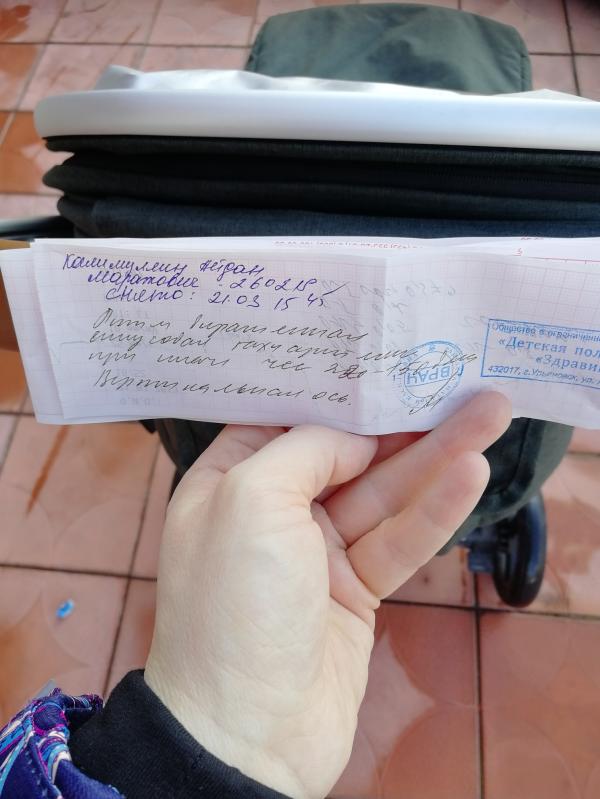 Калимуллин Айдан
Маратович 260218
снято: 21.03 15 45
Ритм выраженная
синусовая тахиаритмия
при плаче ЧСС
Вертикальная ось.
ВРАЧ
Общество с ограниченн
«Детская пол
«Здрави
432017, г.Ульяновск, ул.